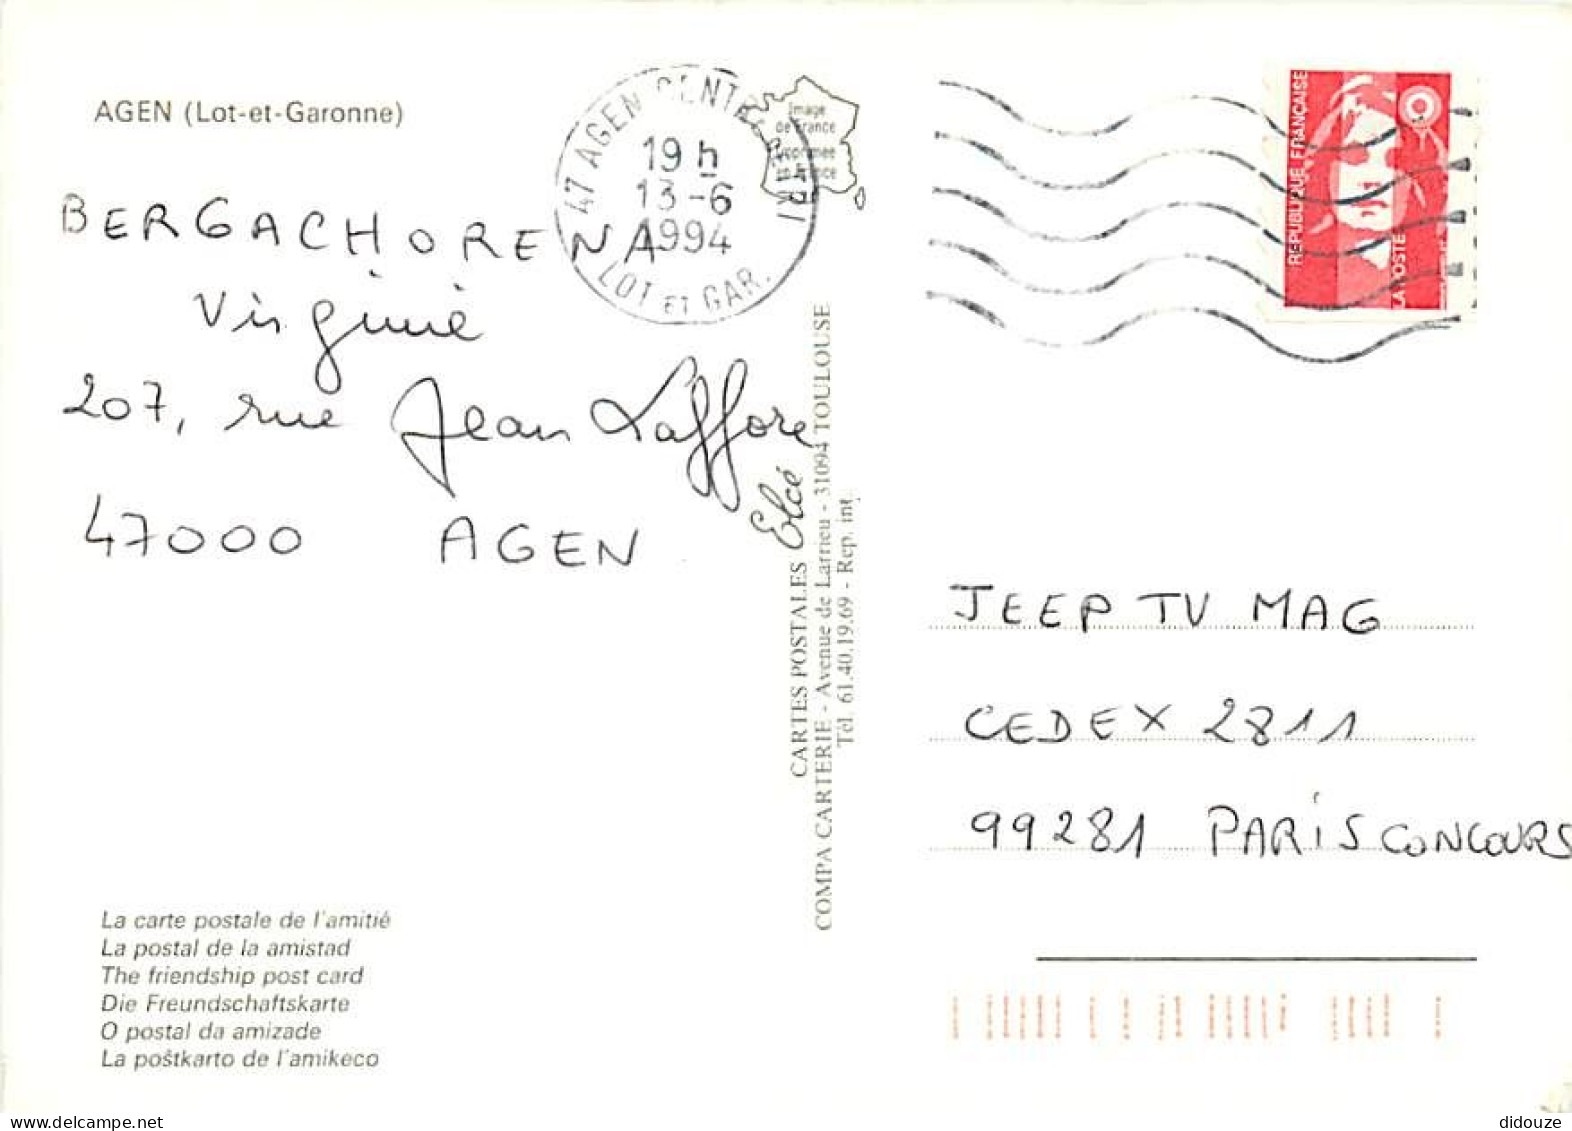 AGEN (Lot-et-Garonne)
47 AGEN CENTRE TRI
19 h
13-6
1994
LOT ET GAR.
Image
de France
Imprimée
en France
REPUBLIQUE FRANÇAISE
LA POSTE
BERGACHORENA
Virginie
207, rue Jean Laffore
47000 AGEN
CARTES POSTALES Elcé
COMPA CARTERIE - Avenue de Larrieu - 31094 TOULOUSE
Tél. 61.40.19.69 - Rep. int.
JEEP TV MAG
CEDEX 2811
99281 PARIS CONCOURS
La carte postale de l'amitié
La postal de la amistad
The friendship post card
Die Freundschaftskarte
O postal da amizade
La poŝtkarto de l'amikeco
didouze